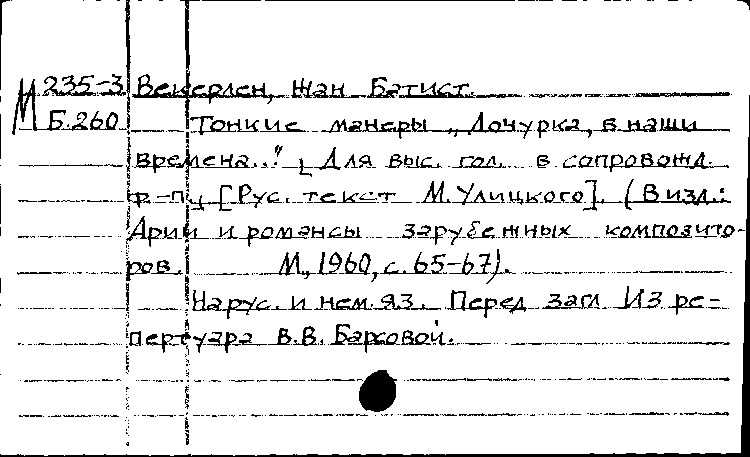 М 235-3 Векерлен, Жан Батист.
Б.260 Тонкие манеры „Дочурка, в наши
времена..." [Для выс. гол. в сопровожд.
ф-п.] [Рус. текст М. Улицкого]. (В изд.:
Арии и романсы зарубежных композито-
ров. М., 1960, с. 65-67).
На рус. и нем. яз. Перед загл. Из ре-
пертуара В.В. Барсовой.